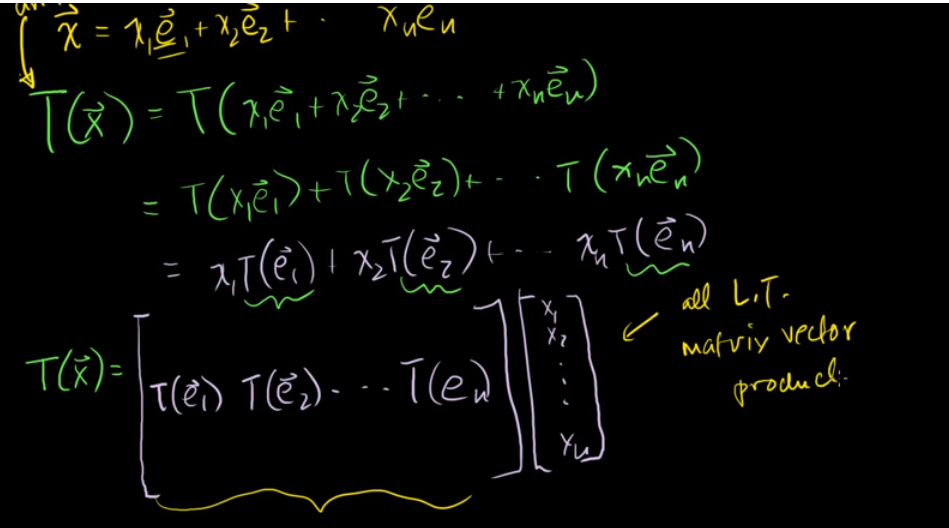 x⃗ = x₁e⃗₁ + x₂e⃗₂ + · xₙeₙ
T(x⃗) = T(x₁e⃗₁ + x₂e⃗₂ + ··· + xₙe⃗ₙ)
= T(x₁e⃗₁) + T(x₂e⃗₂) + ··· T(xₙe⃗ₙ)
= x₁T(e⃗₁) + x₂T(e⃗₂) + ··· xₙT(e⃗ₙ)
T(x⃗) = [T(e⃗₁) T(e⃗₂) ··· T(eₙ)] [x₁ x₂ ⋮ xₙ]
all L.T.
matrix vector
product